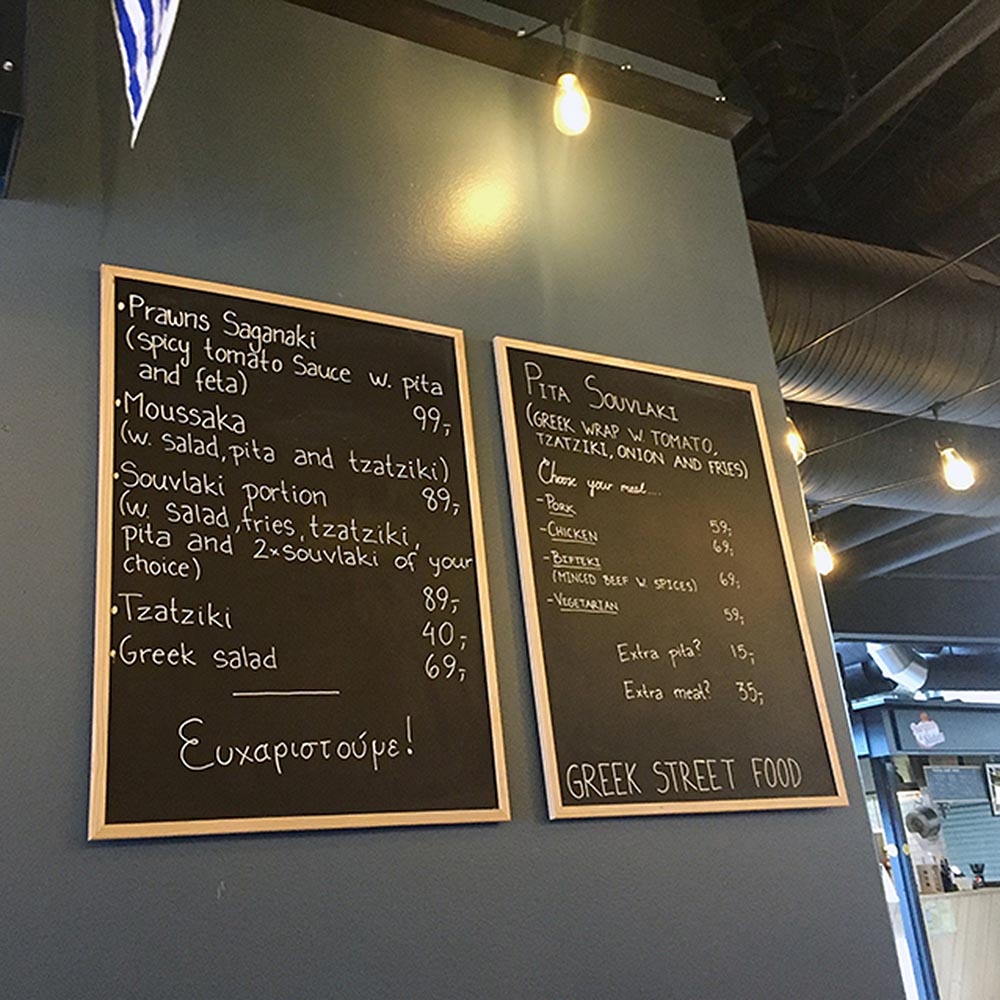 • Prawns Saganaki
(spicy tomato Sauce w. pita
and feta) 99,-
• Moussaka
(w. salad, pita and tzatziki)
89,-
• Souvlaki portion
(w. salad, fries, tzatziki,
pita and 2×souvlaki of your
choice) 89,-
• Tzatziki 40,-
• Greek salad 69,-
Ευχαριστούμε!
PITA SOUVLAKI
(GREEK WRAP W. TOMATO,
TZATZIKI, ONION AND FRIES)
Choose your meat....
-PORK 59,-
-CHICKEN 69,-
-BIFTEKI
(MINCED BEEF W. SPICES) 69,-
-VEGETARIAN 59,-
Extra pita? 15,-
Extra meat? 35,-
GREEK STREET FOOD